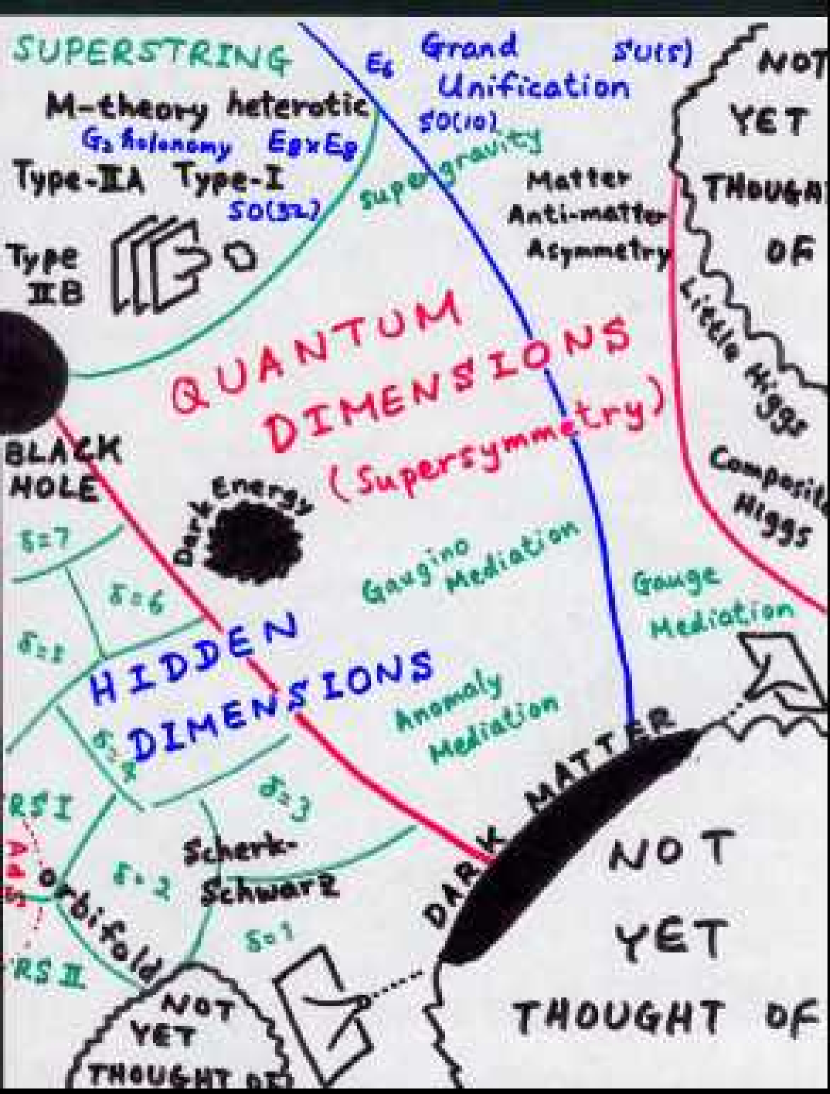 SUPERSTRING
M-theory heterotic
G2 holonomy E8xE8
Type-IIA Type-I
SO(32)
Type
IIB
E6 Grand
Unification
SU(5)
SO(10)
supergravity
Matter
Anti-matter
Asymmetry
NOT
YET
THOUGH
OF
Little Higgs
Composite
Higgs
QUANTUM
DIMENSIONS
(Supersymmetry)
BLACK
HOLE
Dark Energy
Gaugino
Mediation
Gauge
Mediation
Anomaly
Mediation
δ=7
δ=6
HIDDEN
DIMENSIONS
δ=3
RS I
AdS
RS II
orbifold
δ=2
Scherk-
Schwarz
δ=1
DARK MATTER
NOT
YET
THOUGHT OF
NOT
YET
THOUGHT OF